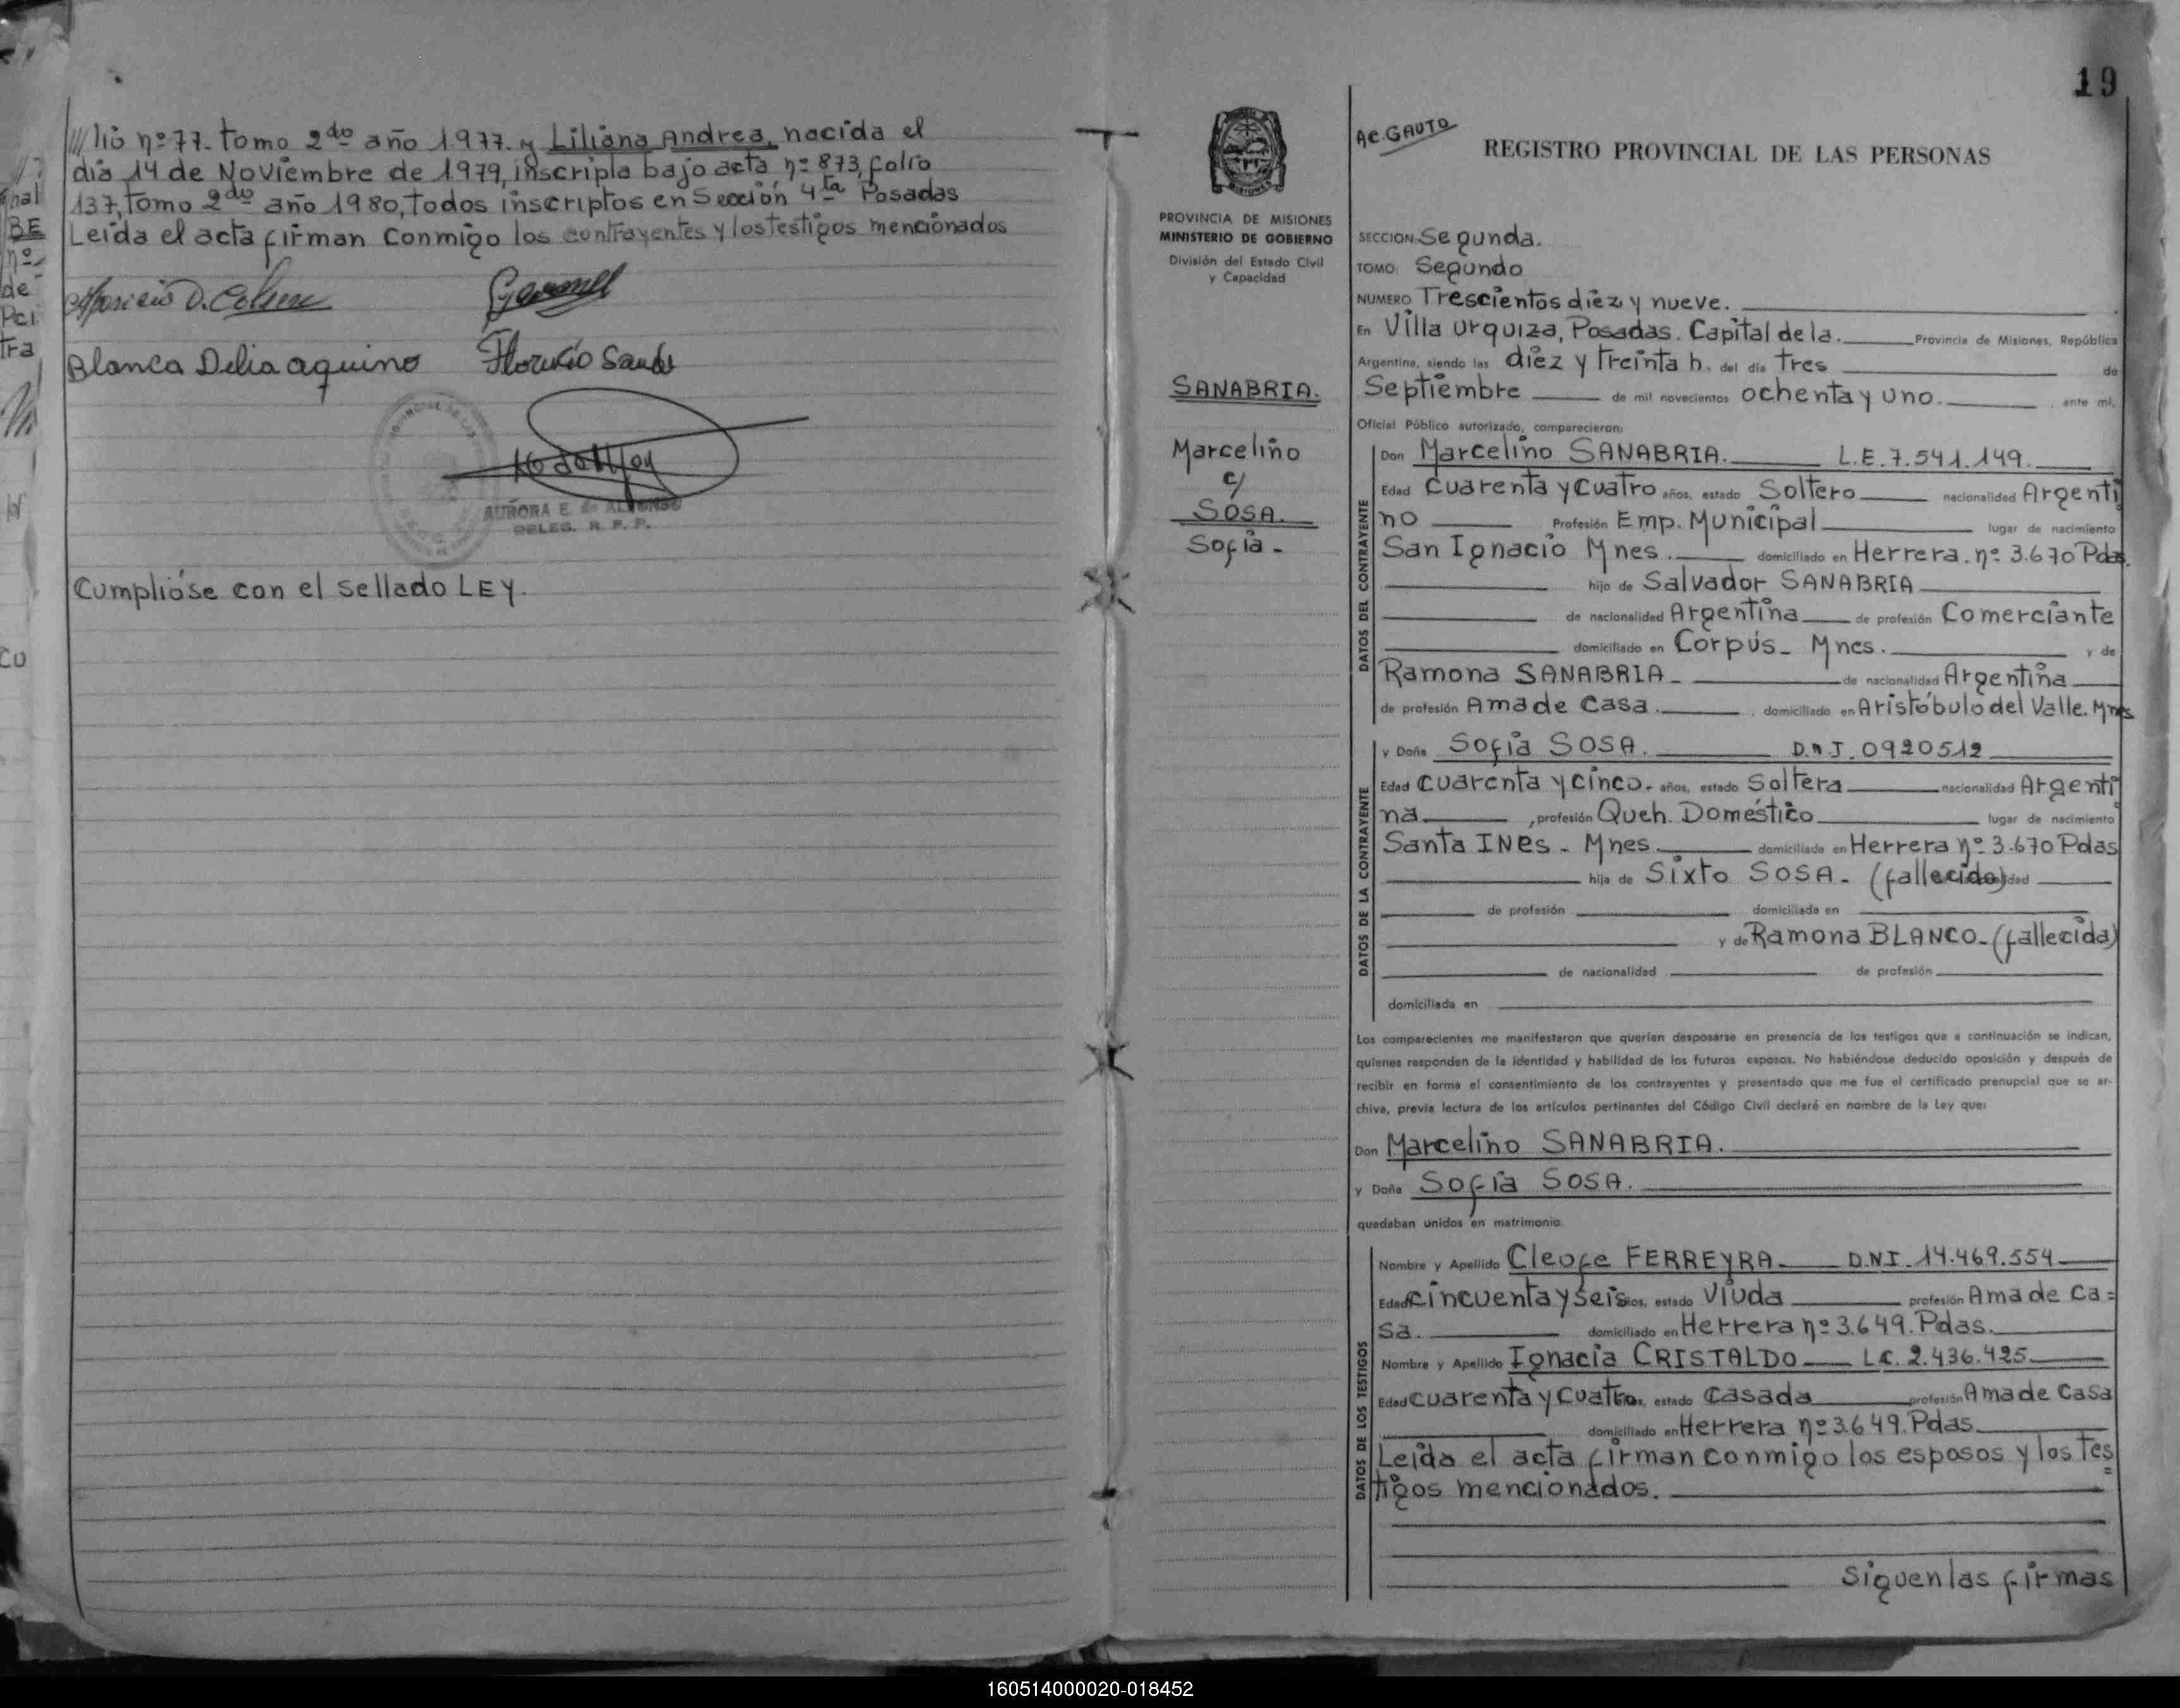 ///lio nº 77. tomo 2do año 1.977. y Liliana Andrea, nacida el
día 14 de Noviembre de 1979, inscripta bajo acta nº 873, folio
137, Tomo 2do año 1980, todos inscriptos en Sección 4ta Posadas
Leída el acta firman conmigo los contrayentes y los testigos mencionados
Aparicio D.
Blanca Delia aquino
AURORA E. de ALFONSO
DELEG. R. P. P.
Cumplióse con el sellado LEY.
19
Ac. GAUTO
REGISTRO PROVINCIAL DE LAS PERSONAS
PROVINCIA DE MISIONES
MINISTERIO DE GOBIERNO
División del Estado Civil
y Capacidad
SANABRIA.
Marcelino
c/
SOSA.
Sofía -
SECCION: Segunda.
TOMO: Segundo
NUMERO Trescientos diez y nueve.
En Villa Urquiza, Posadas. Capital de la. Provincia de Misiones, República
Argentina, siendo las diez y treinta h. del día tres de
Septiembre de mil novecientos ochenta y uno. , ante mí,
Oficial Público autorizado, comparecieron:
DATOS DEL CONTRAYENTE
Don Marcelino SANABRIA. L.E. 7.541.149.
Edad Cuarenta y cuatro años, estado Soltero nacionalidad Argenti
no Profesión Emp. Municipal lugar de nacimiento
San Ignacio Mnes. domiciliado en Herrera. nº 3.670 Pdas.
hijo de Salvador SANABRIA
de nacionalidad Argentina de profesión Comerciante
domiciliado en Corpús - Mnes. y de
Ramona SANABRIA - de nacionalidad Argentina
de profesión Ama de Casa. , domiciliado en Aristóbulo del Valle. Mnes
DATOS DE LA CONTRAYENTE
y Doña Sofía SOSA. D.N.I. 0920512
Edad cuarenta y cinco. años, estado Soltera nacionalidad Argenti
na , profesión Queh. Doméstico lugar de nacimiento
Santa INes - Mnes. domiciliada en Herrera nº 3.670 Pdas
hija de Sixto SOSA - (fallecido)
de profesión domiciliada en
y de Ramona BLANCO - (fallecida)
de nacionalidad de profesión
domiciliada en
Los comparecientes me manifestaron que querían desposarse en presencia de los testigos que a continuación se indican,
quienes responden de la identidad y habilidad de los futuros esposos. No habiéndose deducido oposición y después de
recibir en forma el consentimiento de los contrayentes y presentado que me fue el certificado prenupcial que se ar-
chiva, previa lectura de los artículos pertinentes del Código Civil declaré en nombre de la Ley que:
Don Marcelino SANABRIA.
y Doña Sofía SOSA.
quedaban unidos en matrimonio.
DATOS DE LOS TESTIGOS
Nombre y Apellido Cleofe FERREYRA - D.N.I. 14.469.554
Edad cincuenta y seis años, estado Viuda profesión Ama de Ca=
sa. domiciliado en Herrera nº 3.649. Pdas.
Nombre y Apellido Ignacia CRISTALDO L.C. 2.436.425
Edad cuarenta y cuatro años, estado Casada profesión Ama de Casa
domiciliado en Herrera nº 3.649. Pdas.
Leída el acta firman conmigo los esposos y los tes=
tigos mencionados.
siguen las firmas
160514000020-018452